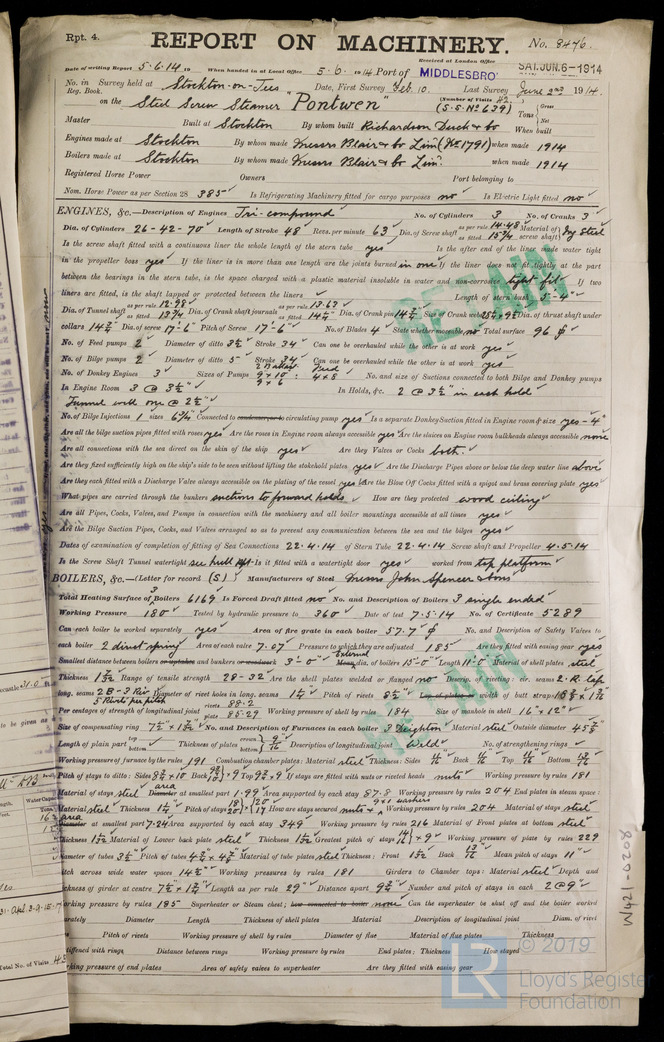 Rpt. 4.
REPORT ON MACHINERY.
No. 8476.
Received at London Office
SAT. JUN. 6-1914
Date of writing Report 5.6.14 19 When handed in at Local Office 5.6. 1914 Port of MIDDLESBRO'
No. in Survey held at Stockton-on-Tees Date, First Survey Feb. 10. Last Survey June 2nd 1914
Reg. Book.
(Number of Visits 42.)
on the Steel Screw Steamer "Pontwen" (S.S. No 639) Tons Gross Net
Master Built at Stockton By whom built Richardson Duck & Co When built
Engines made at Stockton By whom made Messrs Blair & Co Lim. (No 1791) when made 1914
Boilers made at Stockton By whom made Messrs Blair & Co Lim. when made 1914
Registered Horse Power Owners Port belonging to
Nom. Horse Power as per Section 28 385 Is Refrigerating Machinery fitted for cargo purposes no Is Electric Light fitted no
ENGINES, &c.—Description of Engines Tri-compound No. of Cylinders 3 No. of Cranks 3
Dia. of Cylinders 26-42-70 Length of Stroke 48 Revs. per minute 63 Dia. of Screw shaft as per rule 14.48 as fitted 15 3/4 Material of screw shaft Ing Steel
Is the screw shaft fitted with a continuous liner the whole length of the stern tube yes Is the after end of the liner made water tight
in the propeller boss yes If the liner is in more than one length are the joints burned in one If the liner does not fit tightly at the part
between the bearings in the stern tube, is the space charged with a plastic material insoluble in water and non-corrosive tight fit If two
liners are fitted, is the shaft lapped or protected between the liners Length of stern bush 5'-4"
Dia. of Tunnel shaft as per rule 12.98 as fitted 13 3/4 Dia. of Crank shaft journals as per rule 13.63 as fitted 14 1/4 Dia. of Crank pin 14 1/4 Size of Crank webs Dia. of thrust shaft under
collars 14 1/4 Dia. of screw 17'-6" Pitch of Screw 17'-6" No. of Blades 4 State whether moveable no Total surface 96
No. of Feed pumps 2 Diameter of ditto 3 1/2 Stroke 34 Can one be overhauled while the other is at work yes
No. of Bilge pumps 2 Diameter of ditto 5 Stroke 34 Can one be overhauled while the other is at work yes
No. of Donkey Engines 3 Sizes of Pumps 9 x 10 9 x 6 4 x 8 No. and size of Suctions connected to both Bilge and Donkey pumps
In Engine Room 3 @ 3 1/2" In Holds, &c. 2 @ 3 1/2" in each hold
Tunnel well one @ 2 1/2"
No. of Bilge Injections 1 sizes 6 3/4 Connected to circulating pump yes Is a separate Donkey Suction fitted in Engine room & size yes - 4"
Are all the bilge suction pipes fitted with roses yes Are the roses in Engine room always accessible yes Are the sluices on Engine room bulkheads always accessible none
Are all connections with the sea direct on the skin of the ship yes Are they Valves or Cocks both.
Are they fixed sufficiently high on the ship's side to be seen without lifting the stokehold plates yes Are the Discharge Pipes above or below the deep water line above
Are they each fitted with a Discharge Valve always accessible on the plating of the vessel yes Are the Blow Off Cocks fitted with a spigot and brass covering plate yes
What pipes are carried through the bunkers suctions to forward holds How are they protected wood ceiling
Are all Pipes, Cocks, Valves, and Pumps in connection with the machinery and all boiler mountings accessible at all times yes
Are the Bilge Suction Pipes, Cocks, and Valves arranged so as to prevent any communication between the sea and the bilges yes
Dates of examination of completion of fitting of Sea Connections 22.4.14 of Stern Tube 22.4.14 Screw shaft and Propeller 4.5.14
Is the Screw Shaft Tunnel watertight see hull rpt. Is it fitted with a watertight door yes worked from top platform
BOILERS, &c.—(Letter for record (S)) Manufacturers of Steel Messrs John Spencer & Sons
Total Heating Surface of 3 Boilers 6169 Is Forced Draft fitted no No. and Description of Boilers 3 single ended
Working Pressure 180 Tested by hydraulic pressure to 360 Date of test 7.5.14 No. of Certificate 5289
Can each boiler be worked separately yes Area of fire grate in each boiler 57.7 No. and Description of Safety Valves to
each boiler 2 direct spring Area of each valve 7.07 Pressure to which they are adjusted 185 Are they fitted with easing gear yes
Smallest distance between boilers or uptakes and bunkers or woodwork 3'-0" External dia. of boilers 15'-0" Length 11'-0" Material of shell plates steel
Thickness 1 5/32 Range of tensile strength 28-32 Are the shell plates welded or flanged no Descrip. of riveting: cir. seams 2.R.lap
long. seams 2B-3Riv Diameter of rivet holes in long. seams 1 1/4 Pitch of rivets 8 1/2
5 Rivets per pitch
Per centages of strength of longitudinal joint rivets 88.2 plate 85.29 Working pressure of shell by rules 184 Size of manhole in shell 16" x 12"
Size of compensating ring 7 1/2 x 1 5/32 No. and Description of Furnaces in each boiler 3 Deighton Material steel Outside diameter 45
Length of plain part top bottom Thickness of plates crown bottom 9/16 Description of longitudinal joint Weld No. of strengthening rings
Working pressure of furnace by the rules 191 Combustion chamber plates: Material steel Thickness: Sides Back Top Bottom
Pitch of stays to ditto: Sides Back Top If stays are fitted with nuts or riveted heads nuts Working pressure by rules 181
Material of stays steel area at smallest part 1.99 Area supported by each stay 87.8 Working pressure by rules 204 End plates in steam space:
Material steel Thickness Pitch of stays How are stays secured nuts & washers Working pressure by rules 204 Material of stays steel
area at smallest part 7.24 Area supported by each stay 349 Working pressure by rules 216 Material of Front plates at bottom steel
Thickness Material of Lower back plate steel Thickness Greatest pitch of stays Working pressure of plate by rules 229
Diameter of tubes 3 1/2 Pitch of tubes Material of tube plates steel Thickness: Front Back Mean pitch of stays 11"
Pitch across wide water spaces 14 1/2 Working pressures by rules 181 Girders to Chamber tops: Material steel Depth and
thickness of girder at centre Length as per rule 29" Distance apart Number and pitch of stays in each 2 @ 9"
Working pressure by rules 185 Superheater or Steam chest; how connected to boiler none Can the superheater be shut off and the boiler worked
separately Diameter Length Thickness of shell plates Material Description of longitudinal joint Diam. of rivet
Pitch of rivets Working pressure of shell by rules Diameter of flue Material of flue plates Thickness
stiffened with rings Distance between rings Working pressure by rules End plates: Thickness How stayed
Working pressure of end plates Area of safety valves to superheater Are they fitted with easing gear
RETAIN
RETAIN
W421-0208
© 2019
Lloyd's Register
Foundation